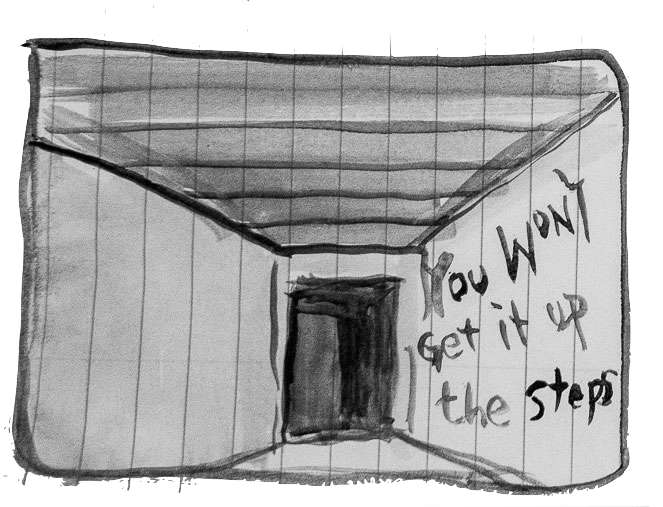 You WON'T
Get it up
the steps